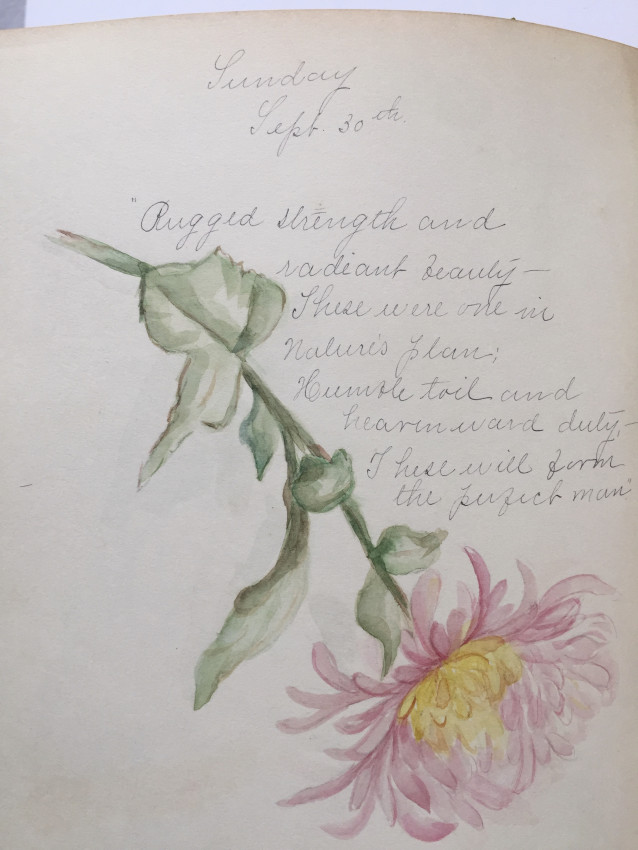 Sunday
Sept. 30th.
"Rugged strength and
radiant beauty—
These were one in
Nature's plan;
Humble toil and
heavenward duty,—
These will form
the perfect man"